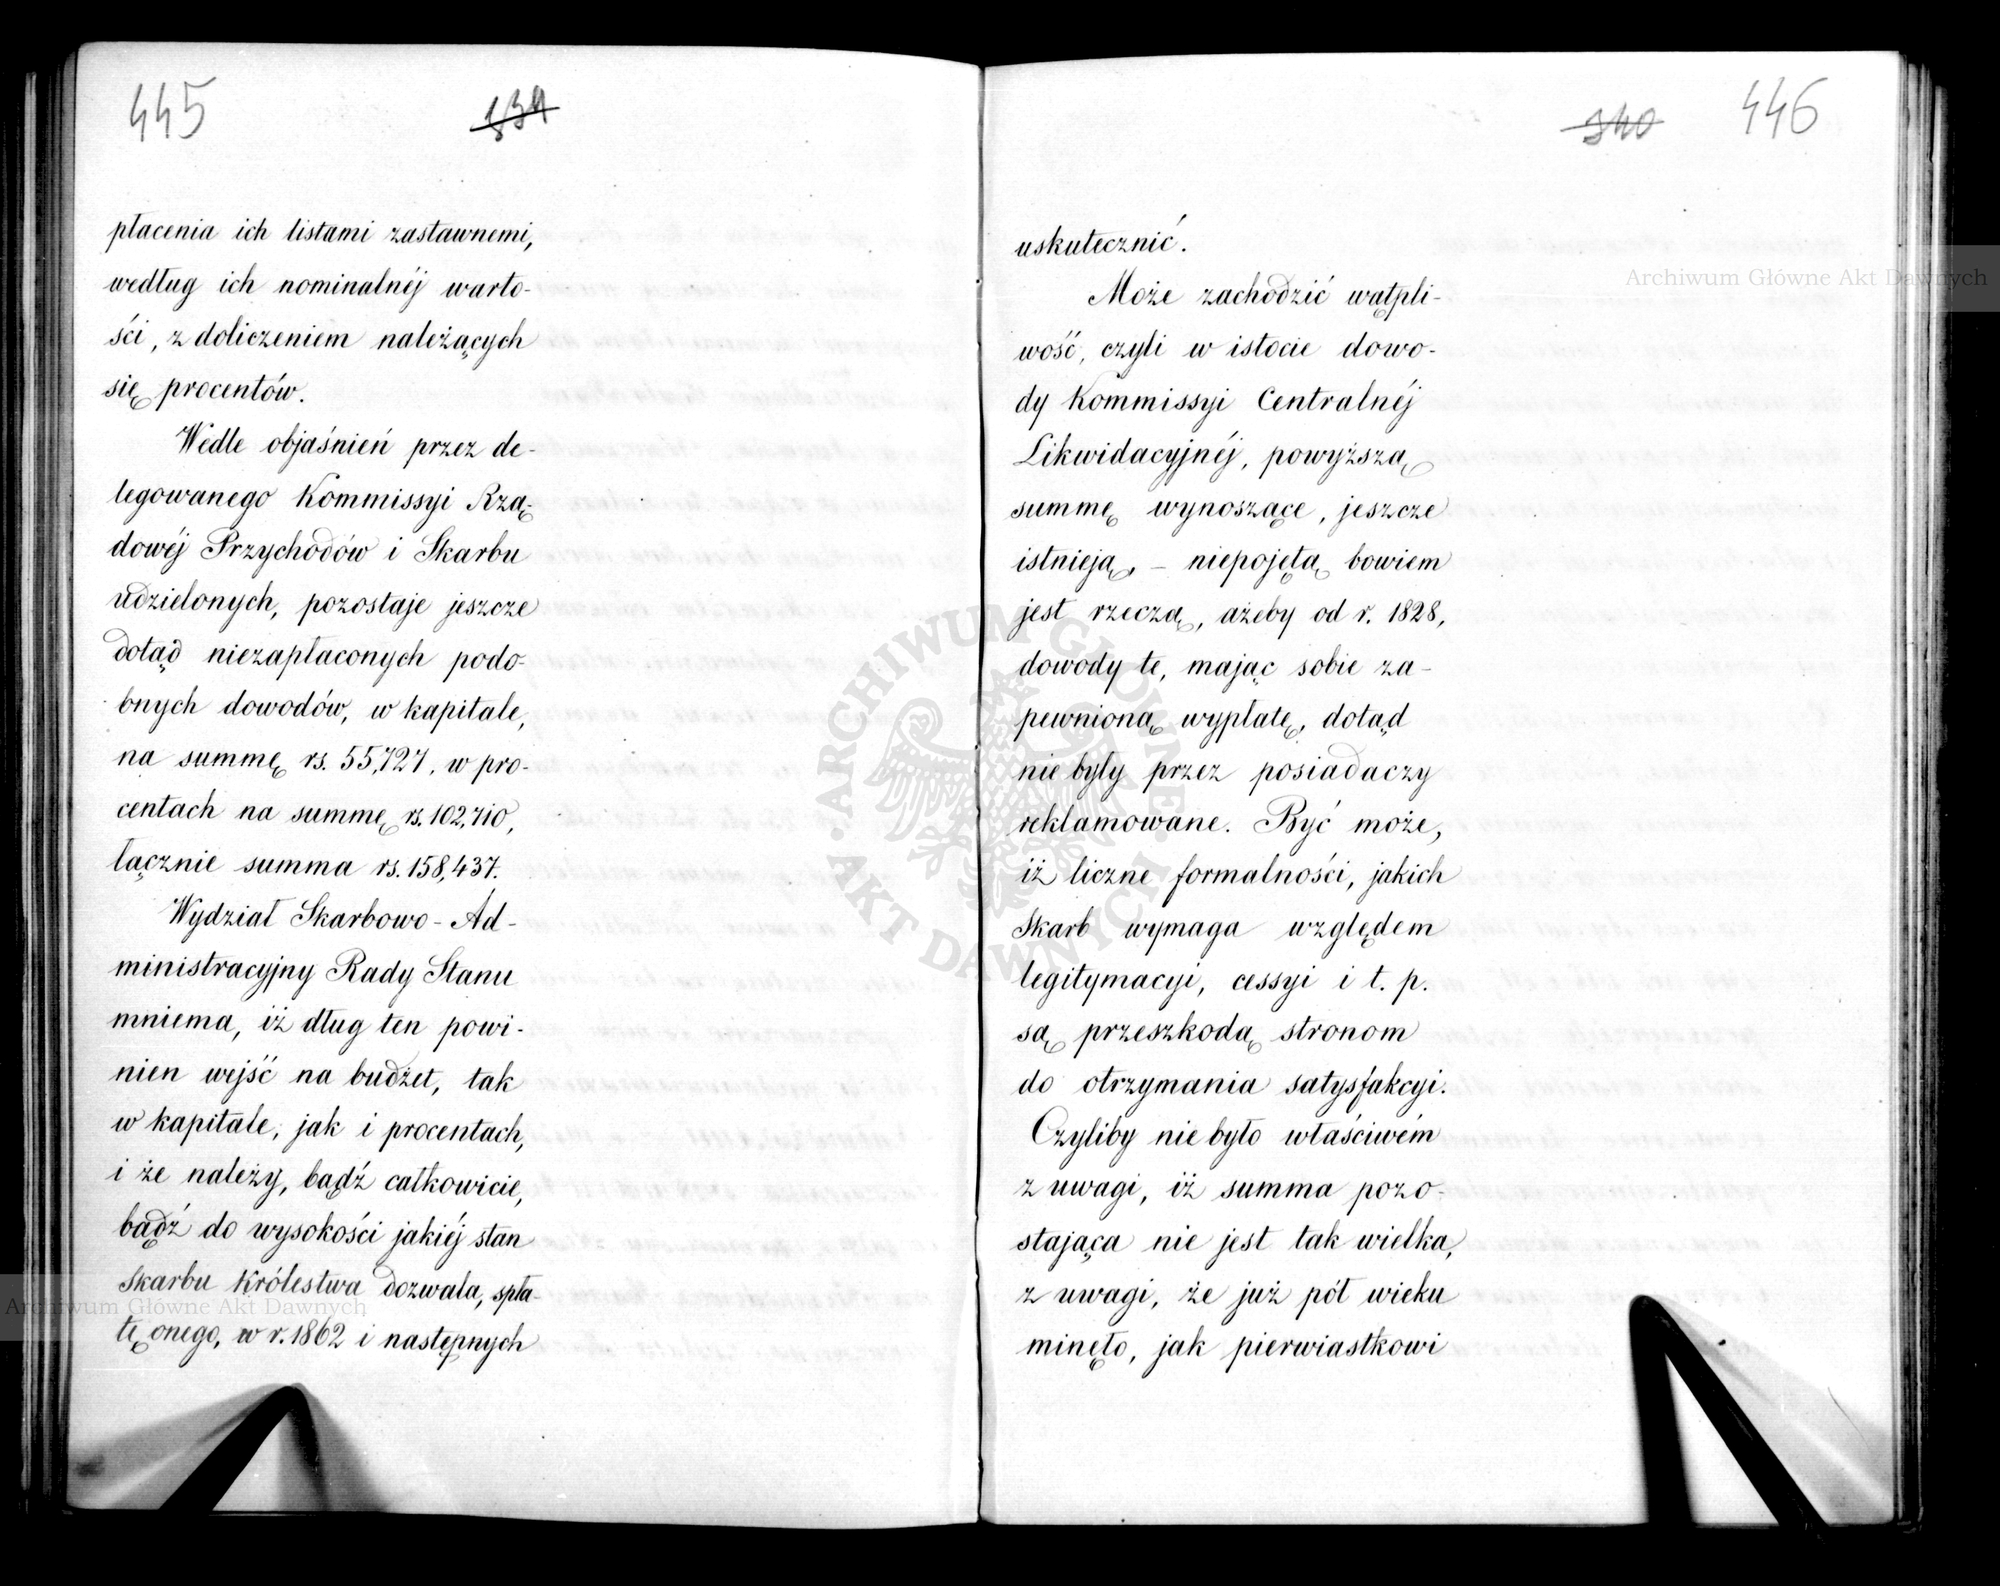 445
płacenia ich listami zastawnemi,
według ich nominalnéj warto-
ści, z doliczeniem należących
się procentów.
Wedle objaśnień przez de-
legowanego Kommissyi Rzą-
dowéj Przychodów i Skarbu
udzielonych, pozostaje jeszcze
dotąd niezapłaconych podo-
bnych dowodów, w kapitale,
na summę rs. 55,727, w pro-
centach na summę rs. 102,710,
łącznie summa rs. 158,437.
Wydział Skarbowo-Ad-
ministracyjny Rady Stanu
mniema, iż dług ten powi-
nien wejść na budżet, tak
w kapitale, jak i procentach,
i że należy, bądź całkowicie,
bądź do wysokości jakiéj stan
Skarbu Królestwa dozwala, spła-
tę onego, w r. 1862 i następnych
340 446
uskutecznić.
Może zachodzić wątpli-
wość, czyli w istocie dowo-
dy Kommissyi Centralnéj
Likwidacyjnéj, powyższą
summę wynoszące, jeszcze
istnieją, – niepojętą bowiem
jest rzeczą, ażeby od r. 1828,
dowody te, mając sobie za-
pewnioną wypłatę, dotąd
nie były przez posiadaczy
reklamowane. Być może,
iż liczne formalności, jakich
Skarb wymaga względem
legitymacyi, cessyi i t. p.
są przeszkodą stronom
do otrzymania satysfakcyi.
Czyliby nie było właściwém
z uwagi, iż summa pozo-
stająca nie jest tak wielka,
z uwagi, że już pół wieku
minęło, jak pierwiastkowi
Archiwum Główne Akt Dawnych
Archiwum Główne Akt Dawnych
ARCHIWUM GŁÓWNE AKT DAWNYCH